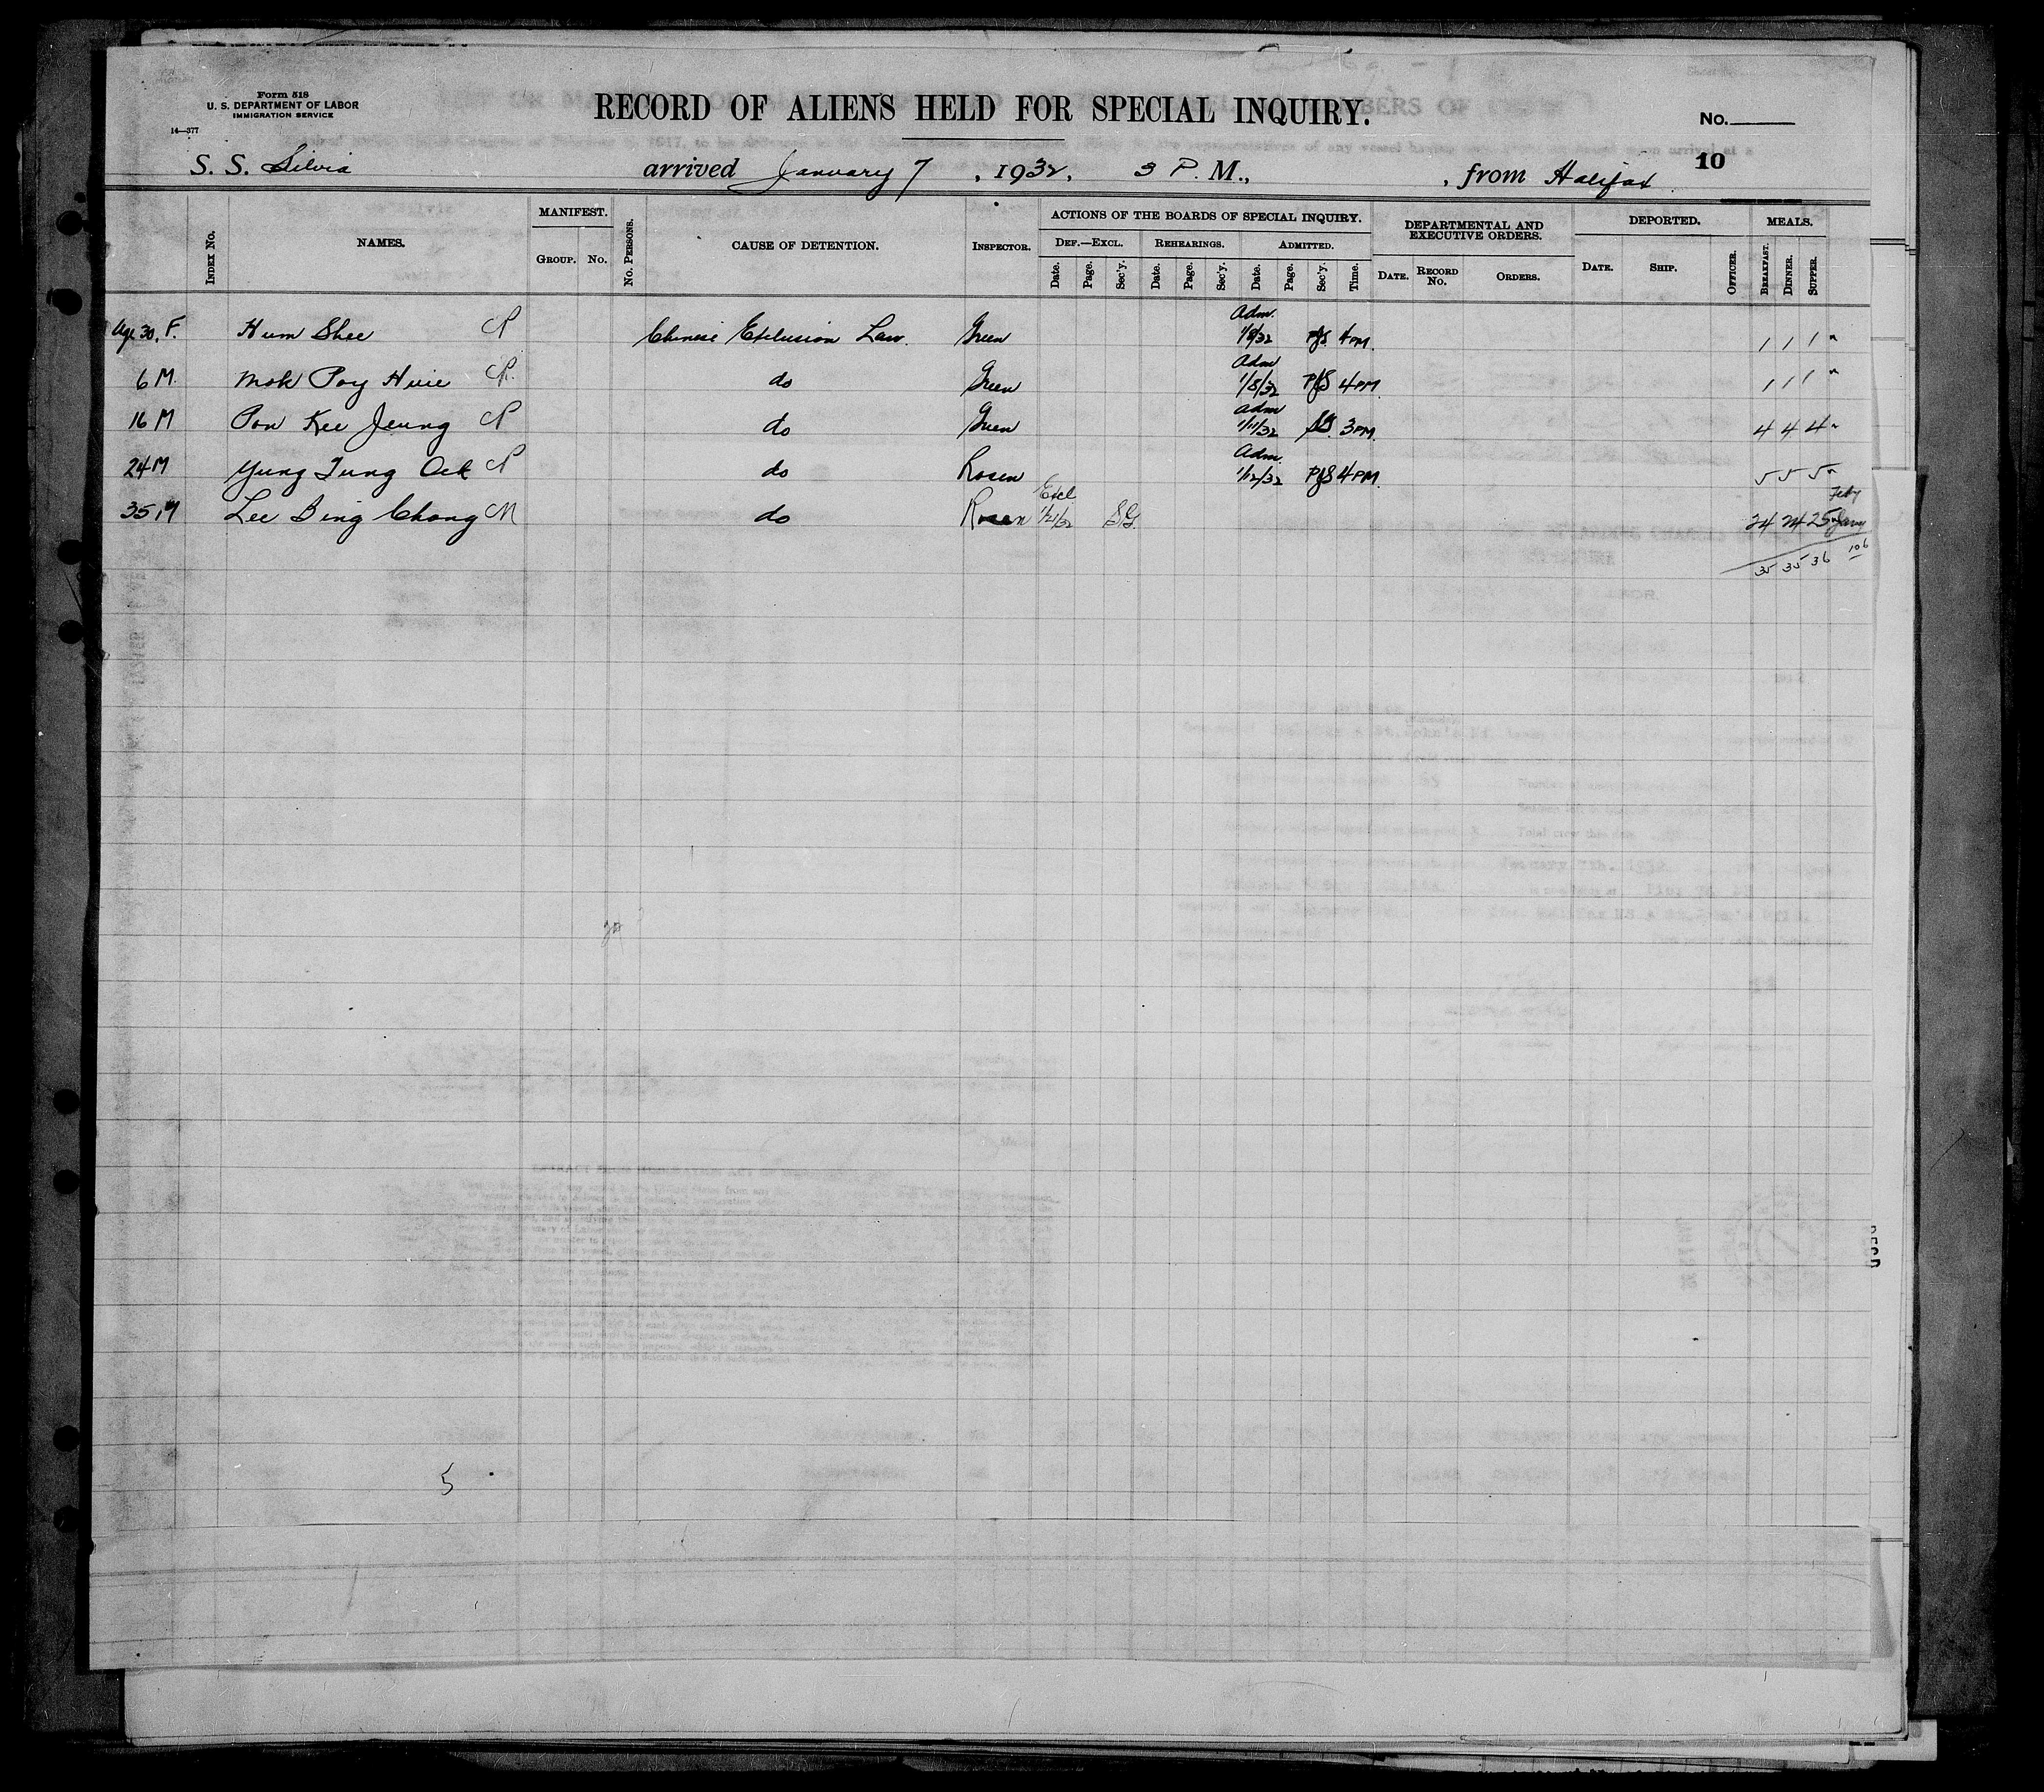 Form 518
U. S. DEPARTMENT OF LABOR
IMMIGRATION SERVICE
14—377
RECORD OF ALIENS HELD FOR SPECIAL INQUIRY.
No.
10
S. S. Silvia arrived January 7, 1932, 3 P. M., , from Halifax
INDEX No. NAMES. MANIFEST. GROUP. No. No. PERSONS. CAUSE OF DETENTION. INSPECTOR. ACTIONS OF THE BOARDS OF SPECIAL INQUIRY. DEF.—EXCL. Date. Page. Sec'y. REHEARINGS. Date. Page. Sec'y. ADMITTED. Date. Page. Sec'y. Time. DEPARTMENTAL AND EXECUTIVE ORDERS. DATE. RECORD No. ORDERS. DEPORTED. DATE. SHIP. OFFICER. MEALS. BREAKFAST. DINNER. SUPPER.
Age 30. F. Hum Shee Chinese Exclusion Law. Green Adm. 1/8/32 PJS 4 PM. 1 1 1 "
6 M. Mok Poy Huie do Green Adm 1/8/32 PJS 4 PM. 1 1 1 "
16 M Pon Kee Jeung do Green Adm 1/11/32 3 PM. 4 4 4 "
24 M Yung Tung do Rosen Adm. 1/12/32 PJS 4 PM. 5 5 5 "
35 M Lee Bing Chong M do Rosen Excl 1/21/32 SG. 24 24 25 Jany Feby
35 35 36 106
5